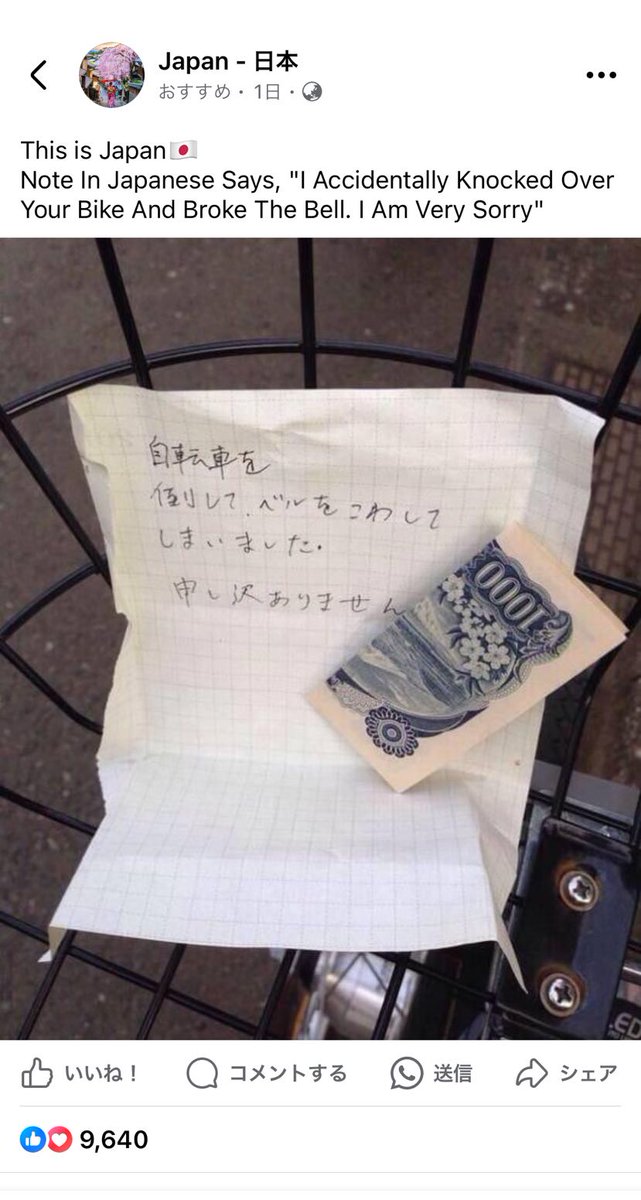 Japan - 日本
おすすめ・1日・
This is Japan🇯🇵
Note In Japanese Says, "I Accidentally Knocked Over
Your Bike And Broke The Bell. I Am Very Sorry"
自転車を
倒して、ベルをこわして
しまいました.
申し訳ありません
1000
LED
いいね!
コメントする
送信
シェア
9,640